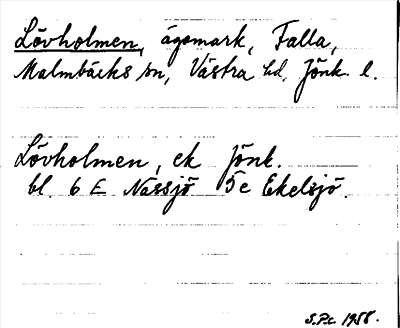 Lövholmen, ägomark, Falla,
Malmbäcks sn, Västra hd, Jönk. l.
Lövholmen, ek Jönk.
bl. 6 E Nässjö 5c Ekelsjö.
S.P.c. 1958.